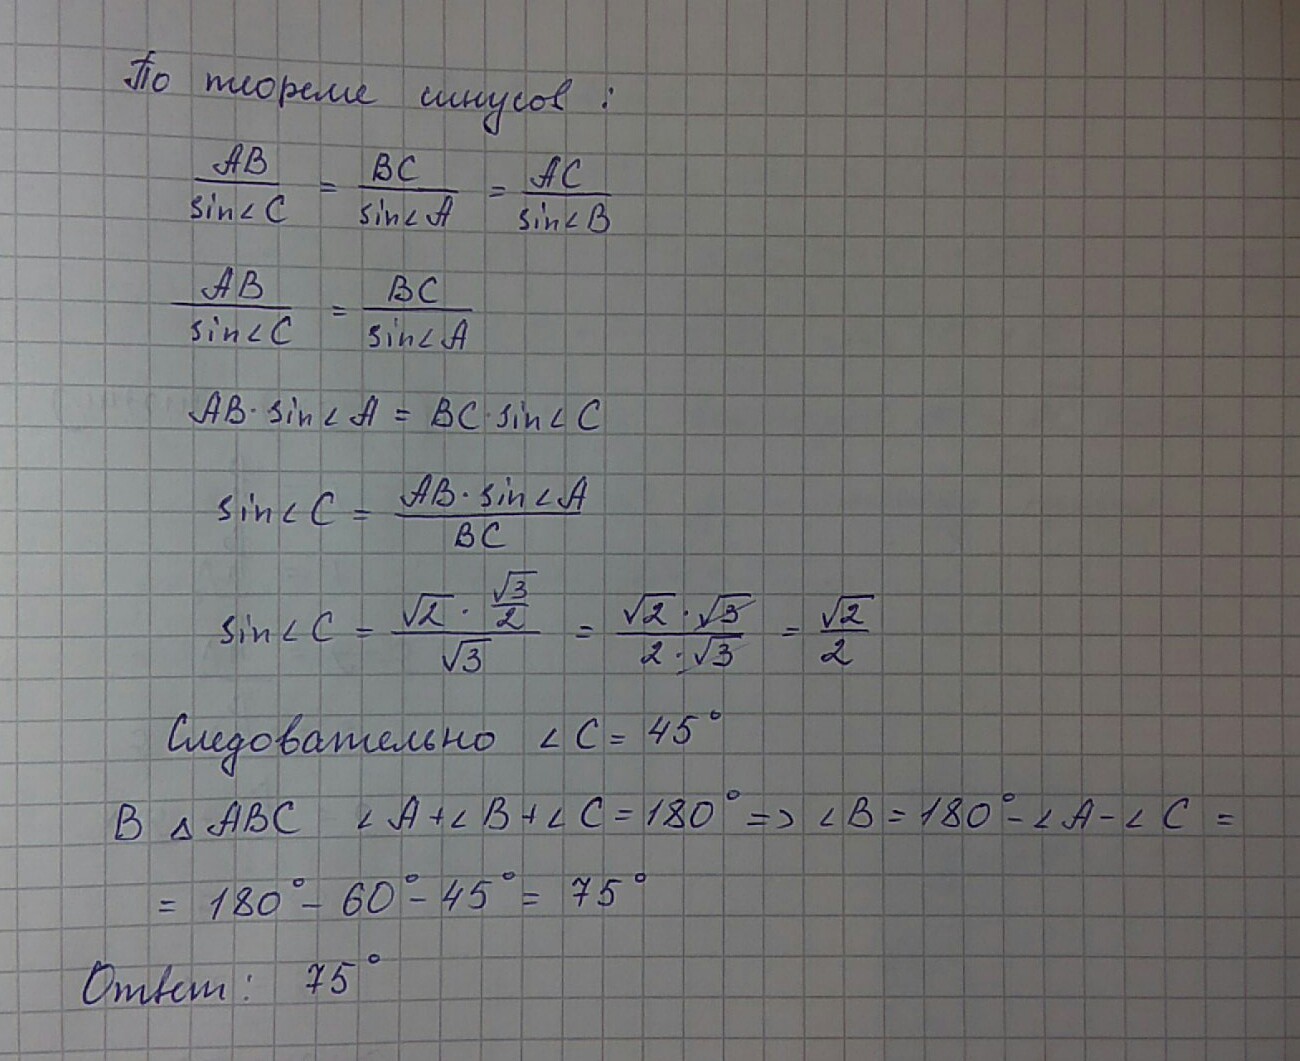 По теореме синусов:
AB/sin∠C = BC/sin∠A = AC/sin∠B
AB/sin∠C = BC/sin∠A
AB·sin∠A = BC·sin∠C
sin∠C = AB·sin∠A/BC
sin∠C = (√2·√3/2)/√3 = √2·√3/2·√3 = √2/2
Следовательно ∠C = 45°
В △ABC ∠A+∠B+∠C=180° => ∠B=180°-∠A-∠C =
= 180°-60°-45°= 75°
Ответ: 75°